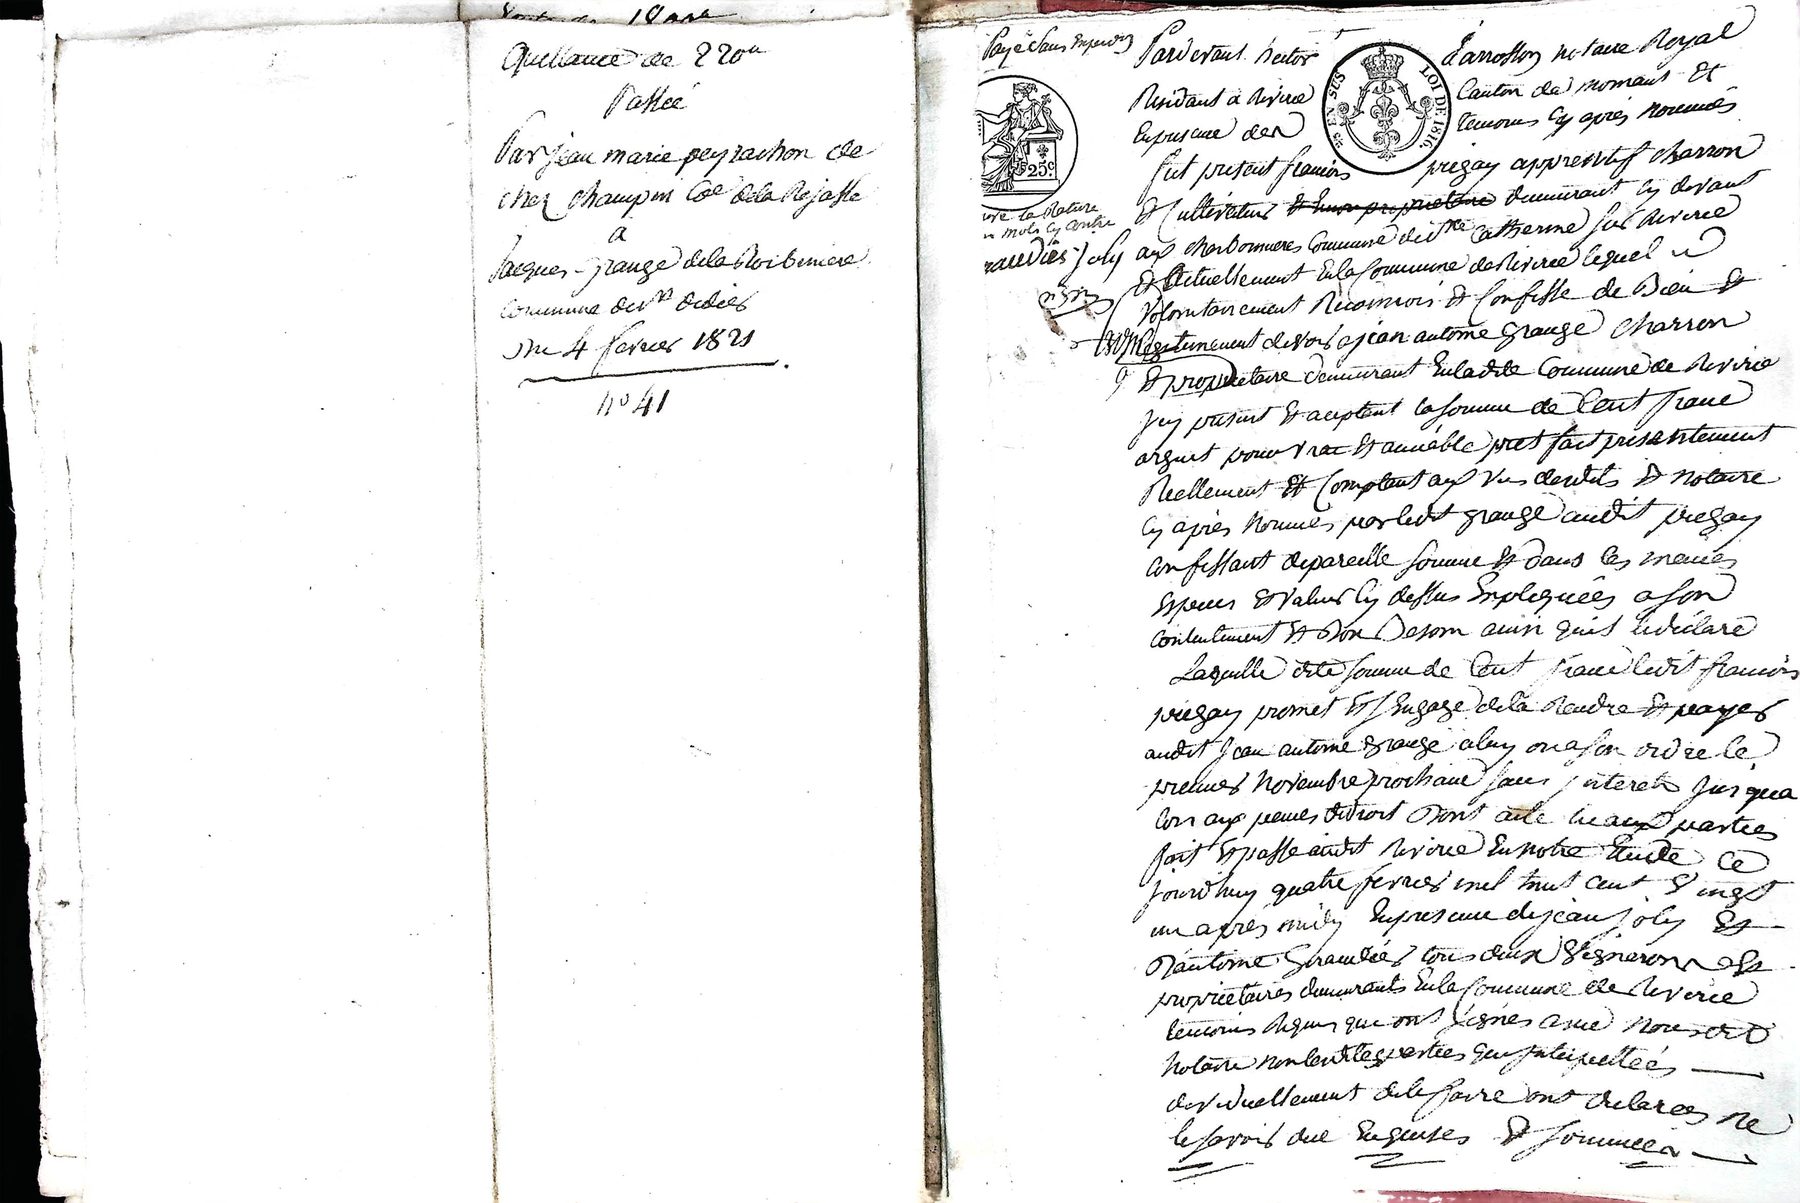 Quittance de 220ᵗᵗ
Passée
Par jean marie peyrachon de
chez champin Cne de la Rajasse
a
Jacques grange de la Roibiniere
commune de st didier
Du 4 fevrier 1821
nº 41
Payé sans
Pardevant hector d'arrosson notaire Royal
Residant a Riverie Canton de mornant Et
En presence des temoins Cy après nommés
EN SUS LOI DE 1816
25c
fut present francois pregay apprentif charron
Et Cultivateur demeurant Cy devant
aux charbonnieres Commune de ste catherine sur Riverie
Et actuellement En la Commune de Riverie lequel
volontairement Reconnois Et Confesse de Dieu Et
legitimement devoir a jean antoine grange charron
Et proprietaire demeurant En ladite Commune de Riverie
Jcy present Et aceptant la somme de Cent franc
argent pour vrai Et amiable pret fait presentement
Reellement Et Comptant aux vus desdits Et notaire
Cy après nommés par ledit grange audit pregay
confessant de pareille somme Et dans les memes
Especes Et valeur Cy dessus Expliquées a son
contentement Et Bon Besoin ainsi qu'il le déclare
Laquelle dite somme de Cent franc ledit francois
pregay promet Et s'Engage de la Rendre Et payer
audit jean antoine grange a luy ou a son ordre le
premier Novembre prochain sans jnterets jusqua
lors aux peines de droit Dont acte lu aux parties
fait Et passé audit Riverie En notre Etude Ce
jourd'huy quatre fevrier mil huit cent Vingt
un après midy En presence de jean joly Et
D'antoine Giraudier tous deux Vignerons Et
proprietaires demeurants En la Commune de Riverie
temoins Requis qui ont signés avec Nousdit
Notaire non lesdites parties qui jnterpellées
de le faire ont declarées ne
le savoir due Enquises Et sommées